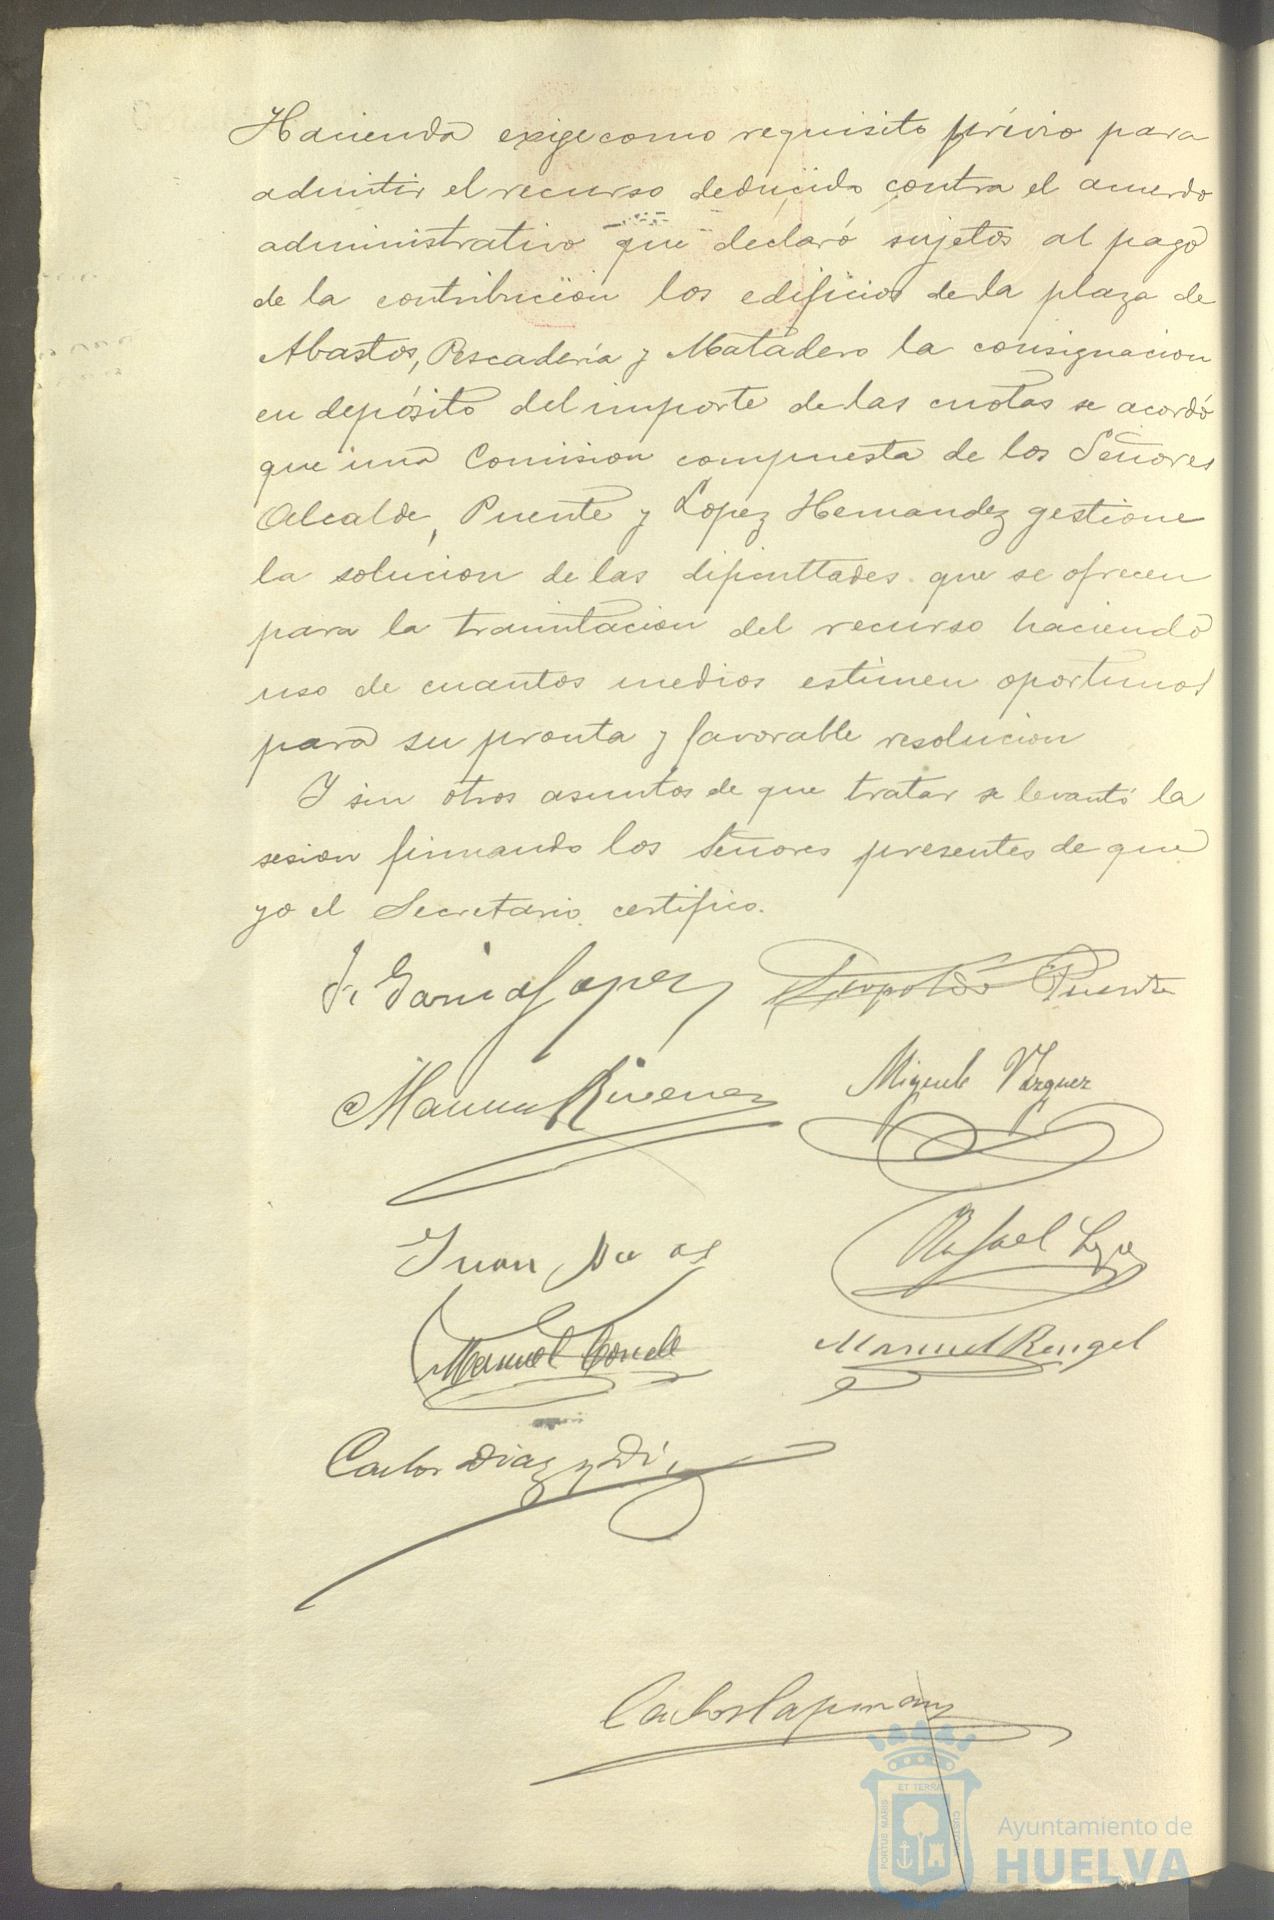 Hacienda exige como requisito prévio para
admitir el recurso deducido contra el acuerdo
administrativo que declaró sujetos al pago
de la contribucion los edificios de la plaza de
Abastos, Pescadería y Matadero la consignacion
en depósito del importe de las cuotas se acordó
que una Comision compuesta de los Señores
Alcalde, Puente y Lopez Hernandez gestione
la solucion de las dificultades que se ofrecen
para la tramitacion del recurso haciendo
uso de cuantos medios estimen oportunos
para su pronta y favorable resolucion
Y sin otros asuntos de que tratar se levantó la
sesion firmando los Señores presentes de que
yo el Secretario certifico.
Garcia Lopez Leopoldo Puente
Miguel Vazquez
Juan
Rafael
Manuel Conde Manuel Rengel
Carlos Diaz y
Carlos
PORTUS MARIS ET TERRAE CUSTODIA
Ayuntamiento de
HUELVA